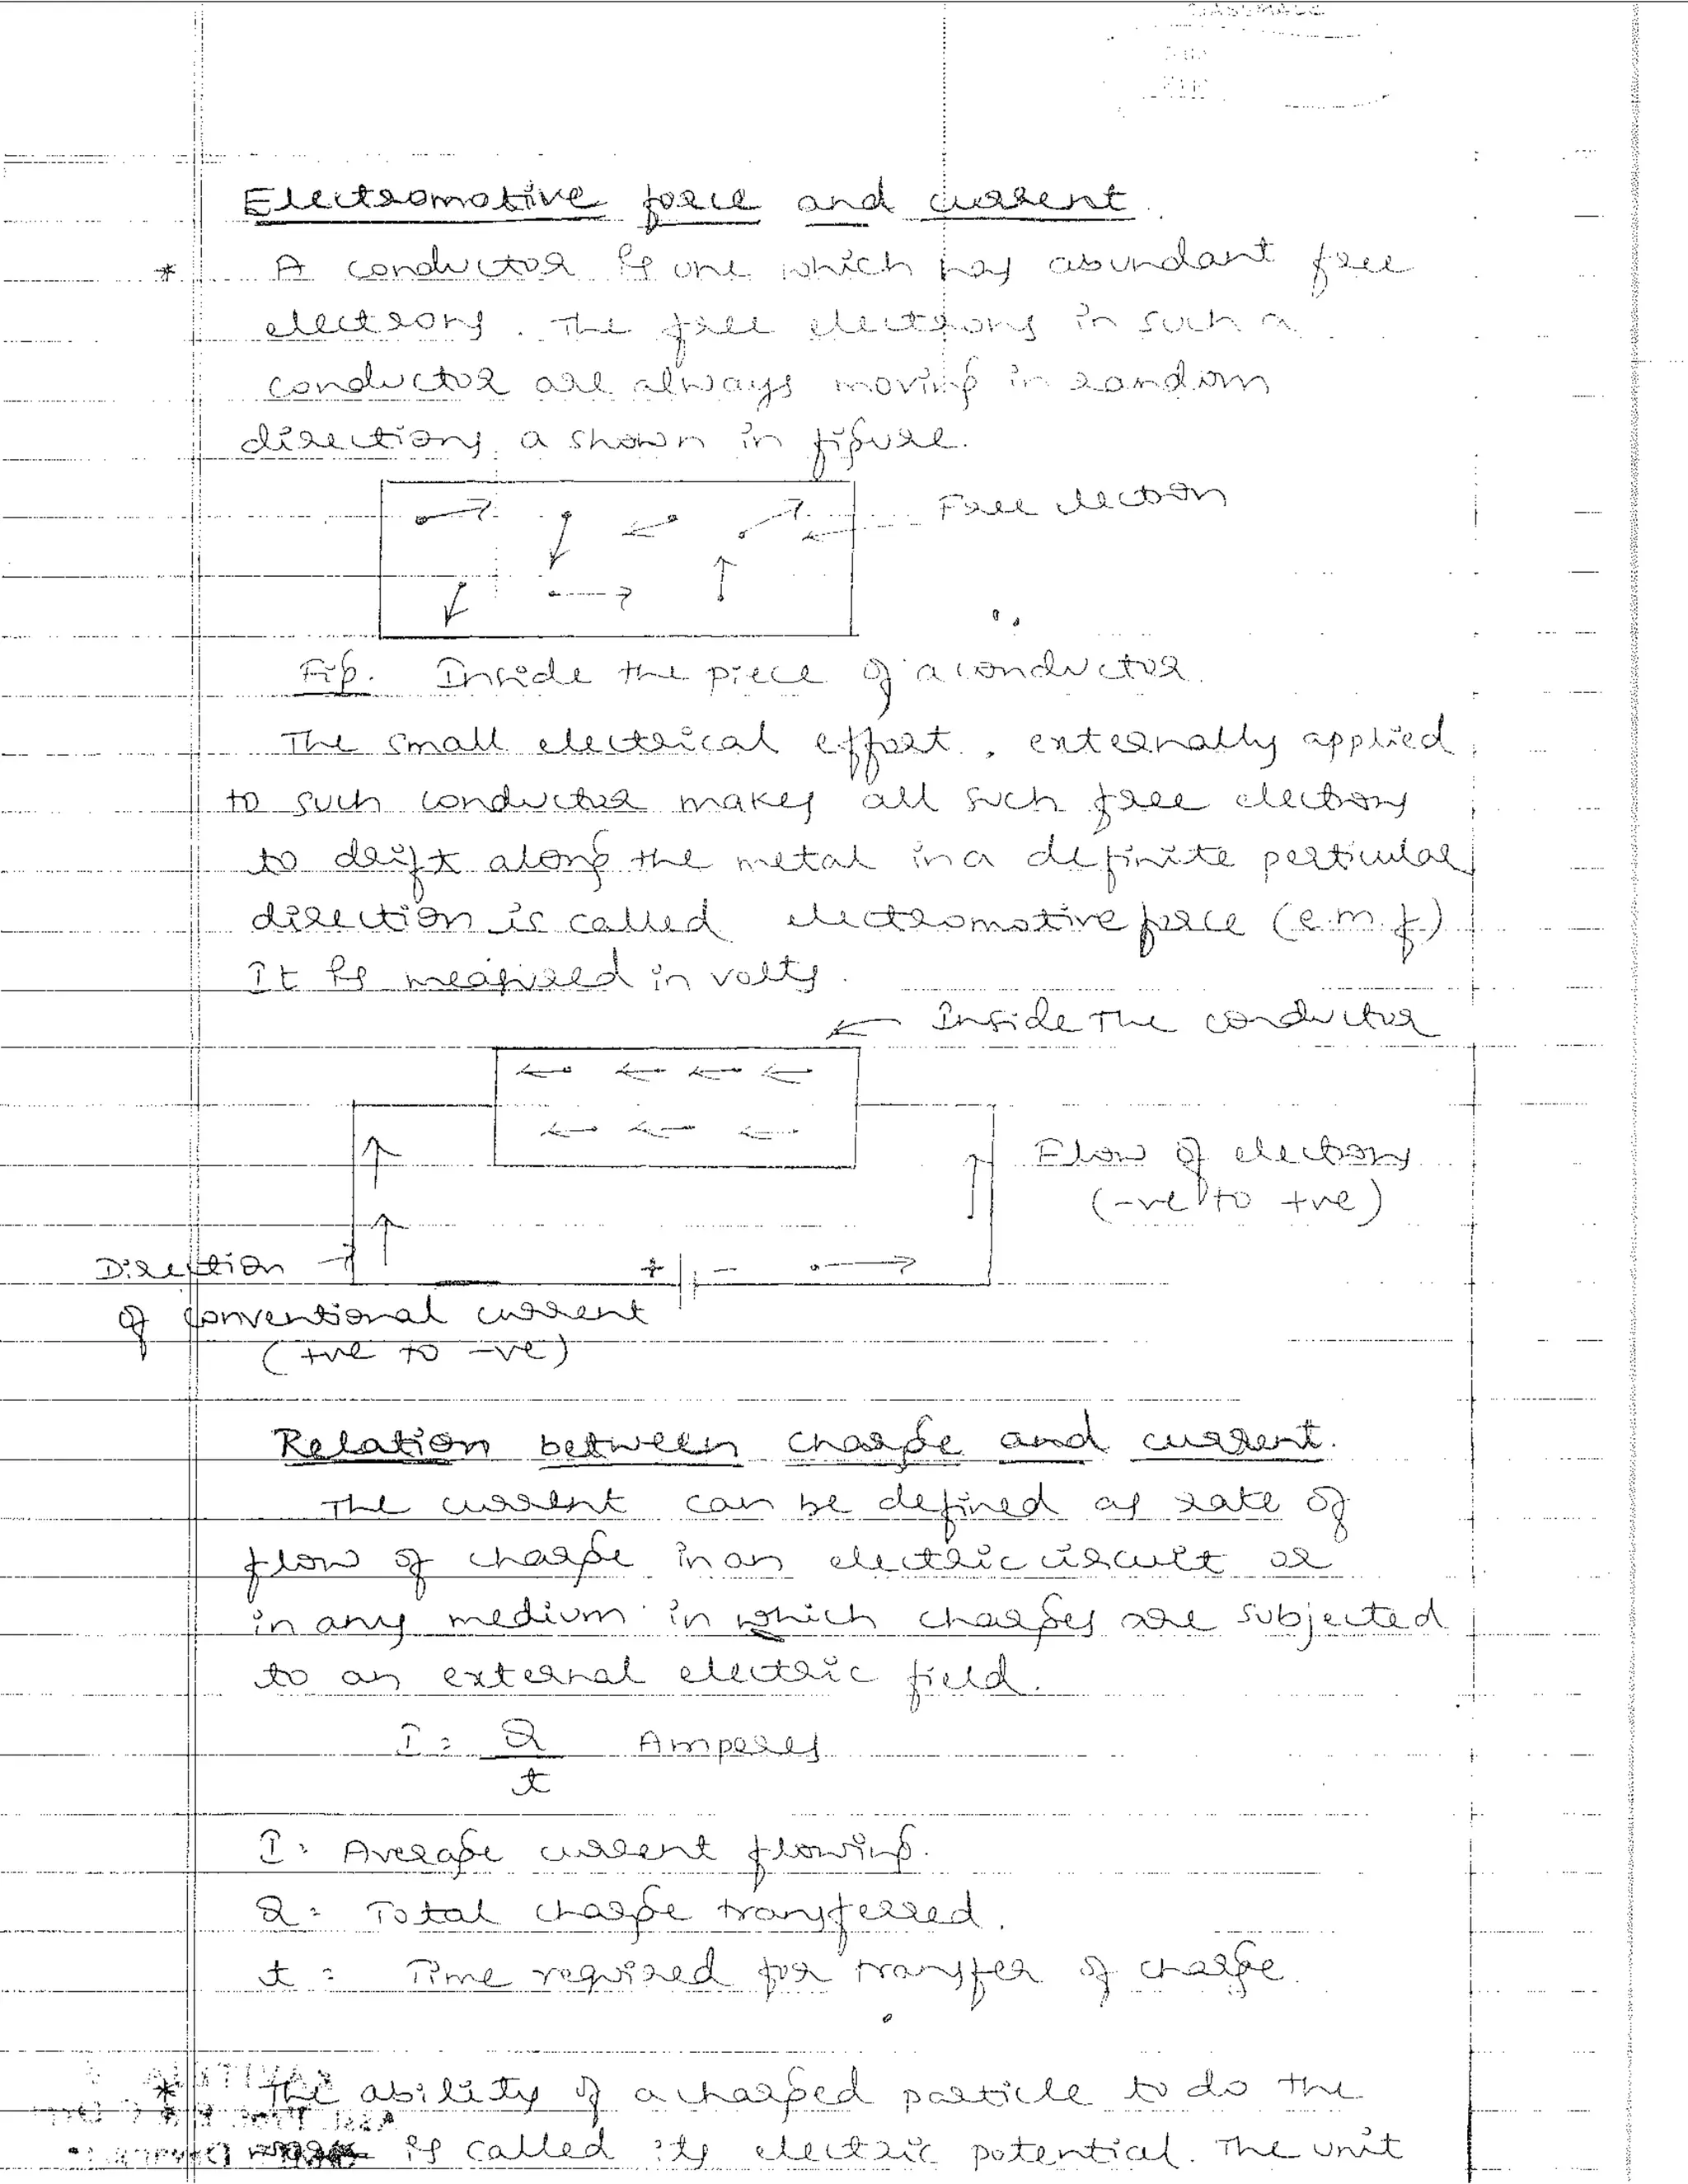 Electromotive force and current.
* A conductor is one which has abundant free
electrons. The free electrons in such a
conductor are always moving in random
directions a shown in figure.
Free electron
Fig. Inside the piece of a conductor.
The small electrical effort, externally applied
to such conductor makes all such free electrons
to drift along the metal in a definite perticular
direction is called electromotive force (e.m.f)
It is measured in volts.
Inside The conductor
Flow of electrons
(-ve to +ve)
+ -
Direction
of conventional current
(+ve to -ve)
Relation between charge and current.
The current can be defined as rate of
flow of charge in an electric circuit or
in any medium in which charges are subjected
to an external electric field.
I = Q Amperes
t
I = Average current flowing.
Q = Total charge transferred.
t = Time required for transfer of charge.
* The ability of a charged particle to do the
work is called its electric potential. The unit